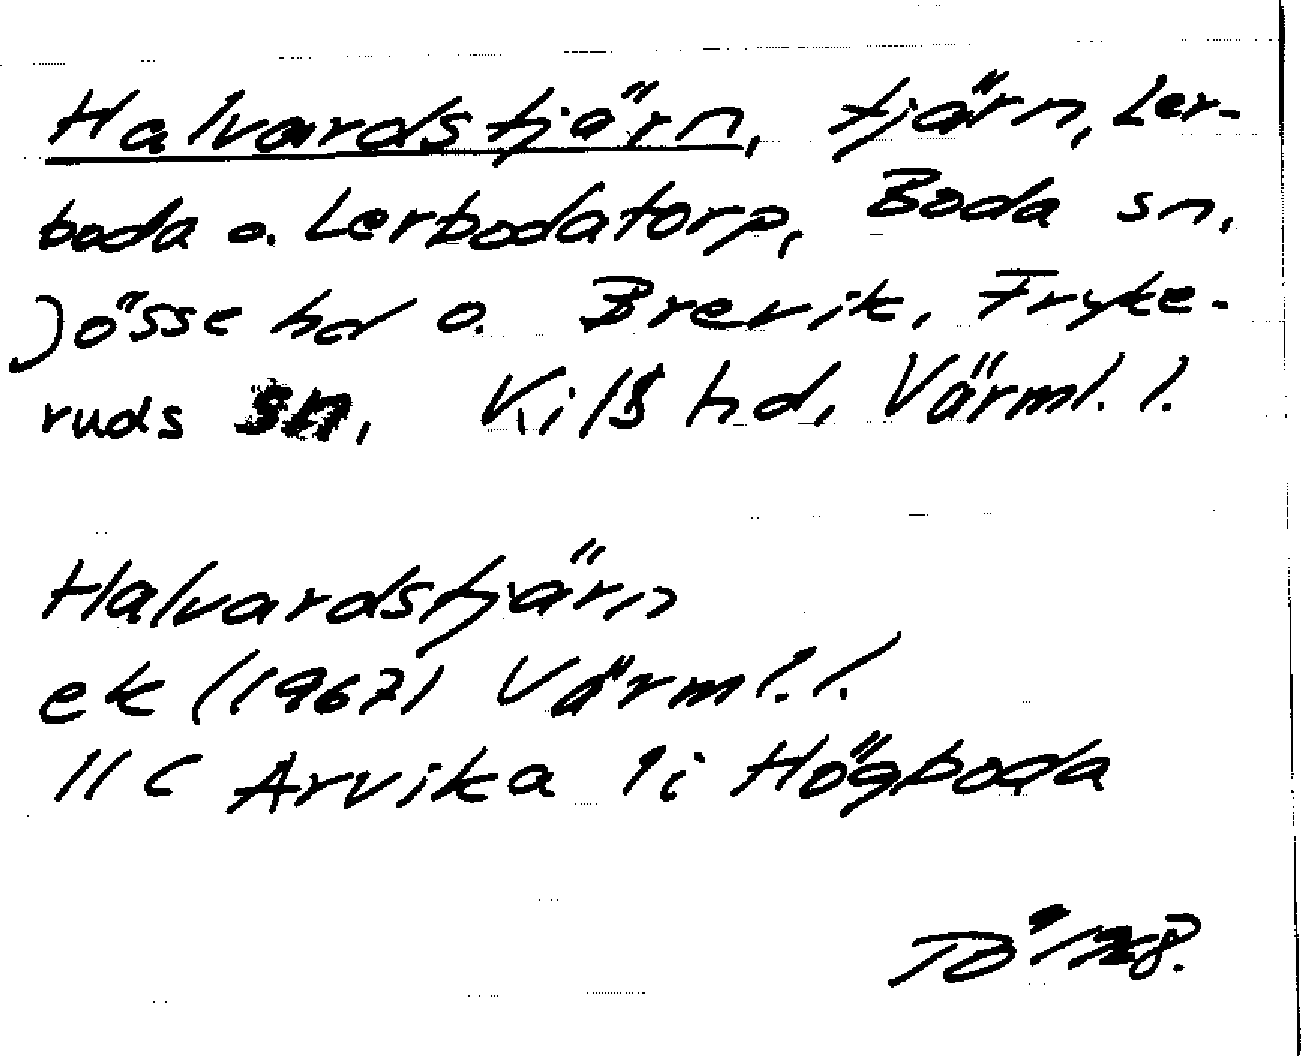 Halvardstjärn, tjärn, Ler-
boda o. Lerbodatorp, Boda sn,
Jösse hd o. Brevik, Fryke-
ruds sn, Kils hd, Värml. l.
Halvardstjärn
ek (1967) Värml. l.
11 C Arvika 1i Högboda